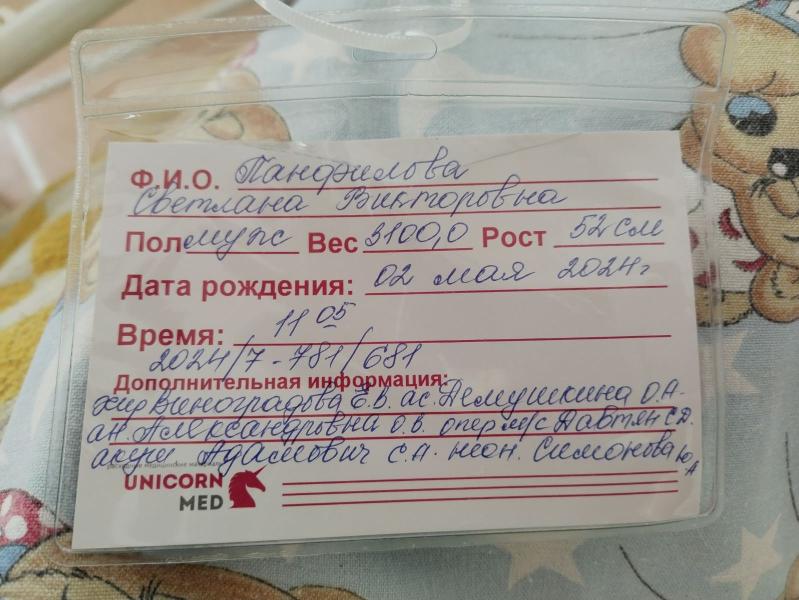 Ф.И.О. Панфилова
Светлана Викторовна
Пол муж Вес 3100,0 Рост 52 см
Дата рождения: 02 мая 2024г
Время: 11 05
2024/7-781/681
Дополнительная информация:
хир Виноградова Е.В. ас. Демушкина О.А.
ан. Александровна О.В. опер м/с Давтян С.Д.
акуш Адамович С.А. неон. Симонова Ю.А
расходные медицинские материалы
UNICORN
MED